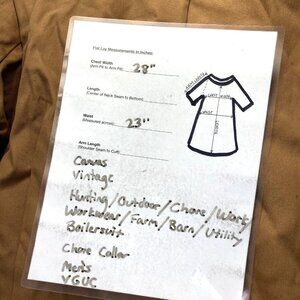 Flat Lay Measurements in Inches:
Chest Width 28"
(Arm Pit to Arm Pit)
Length
(Center of Neck Seam to Bottom)
Waist 23"
(Measured across)
Arm Length
(Shoulder Seam to Cuff)
Canvas
Vintage
Hunting/Outdoor/Chore/Work
Workwear/Farm/Barn/Utility
Boilersuit
Chore Collar
Men's
VGUC